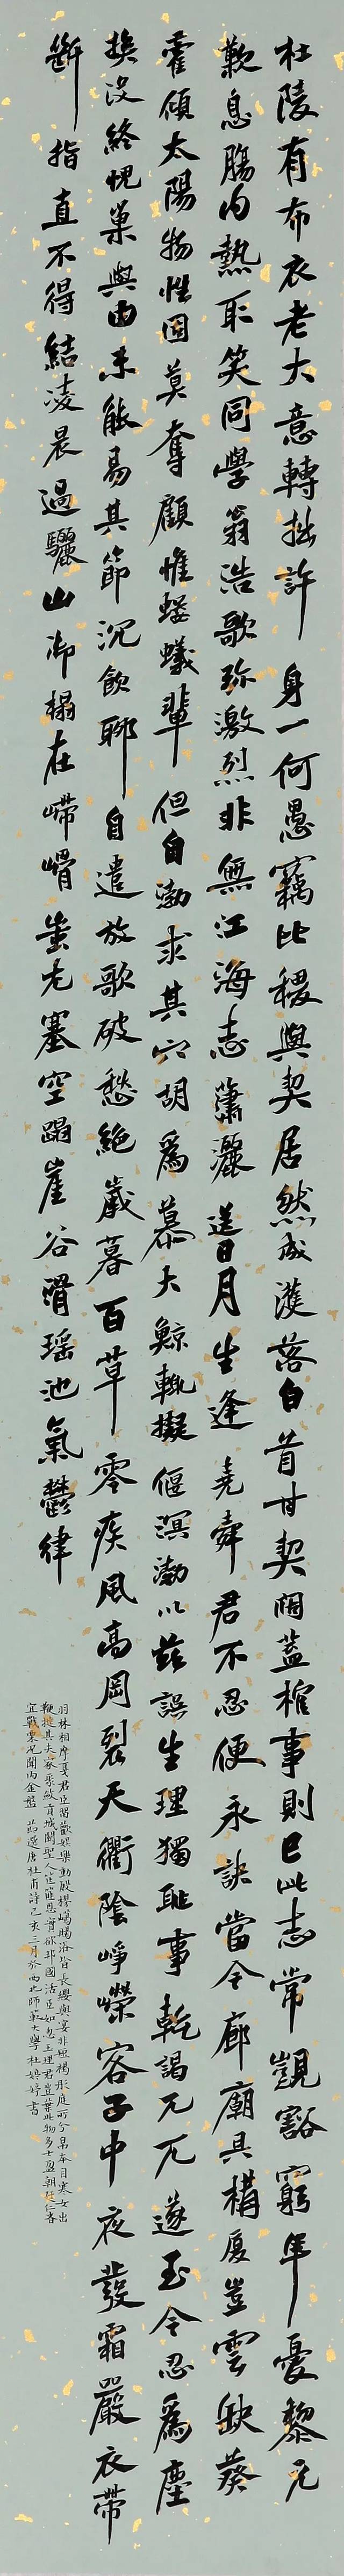 杜陵有布衣老大意轉拙許身一何愚竊比稷與契居然成濩落白首甘契闊蓋棺事則已此志常覬豁窮年憂黎元
歎息腸內熱取笑同學翁浩歌彌激烈非無江海志蕭灑送日月生逢堯舜君不忍便永訣當今廊廟具構廈豈雲缺葵
藿傾太陽物性固莫奪顧惟螻蟻輩但自渤求其穴胡爲慕大鯨輒擬偃溟渤以茲誤生理獨恥事乾謁兀兀遂至今忍爲塵
埃沒終愧巢與由未能易其節沉飲聊自遣放歌破愁絕歲暮百草零疾風高岡裂天衢陰崢嶸客子中夜發霜嚴衣帶
斷指直不得結凌晨過驪山御榻在嵽嵲蚩尤塞空蹋崖谷滑瑤池氣鬱律
羽林相摩戛君臣留歡娛樂動殷樛嶱賜浴皆長纓與宴非短褐彤庭所分帛本自寒女出
鞭撻其夫家聚斂貢城闕聖人筐篚恩實欲邦國活臣如忽至理君豈棄此物多士盈朝廷仁者
宜戰栗況聞內金盤 節選唐杜甫詩己亥三月於西北師範大學杜娉婷書